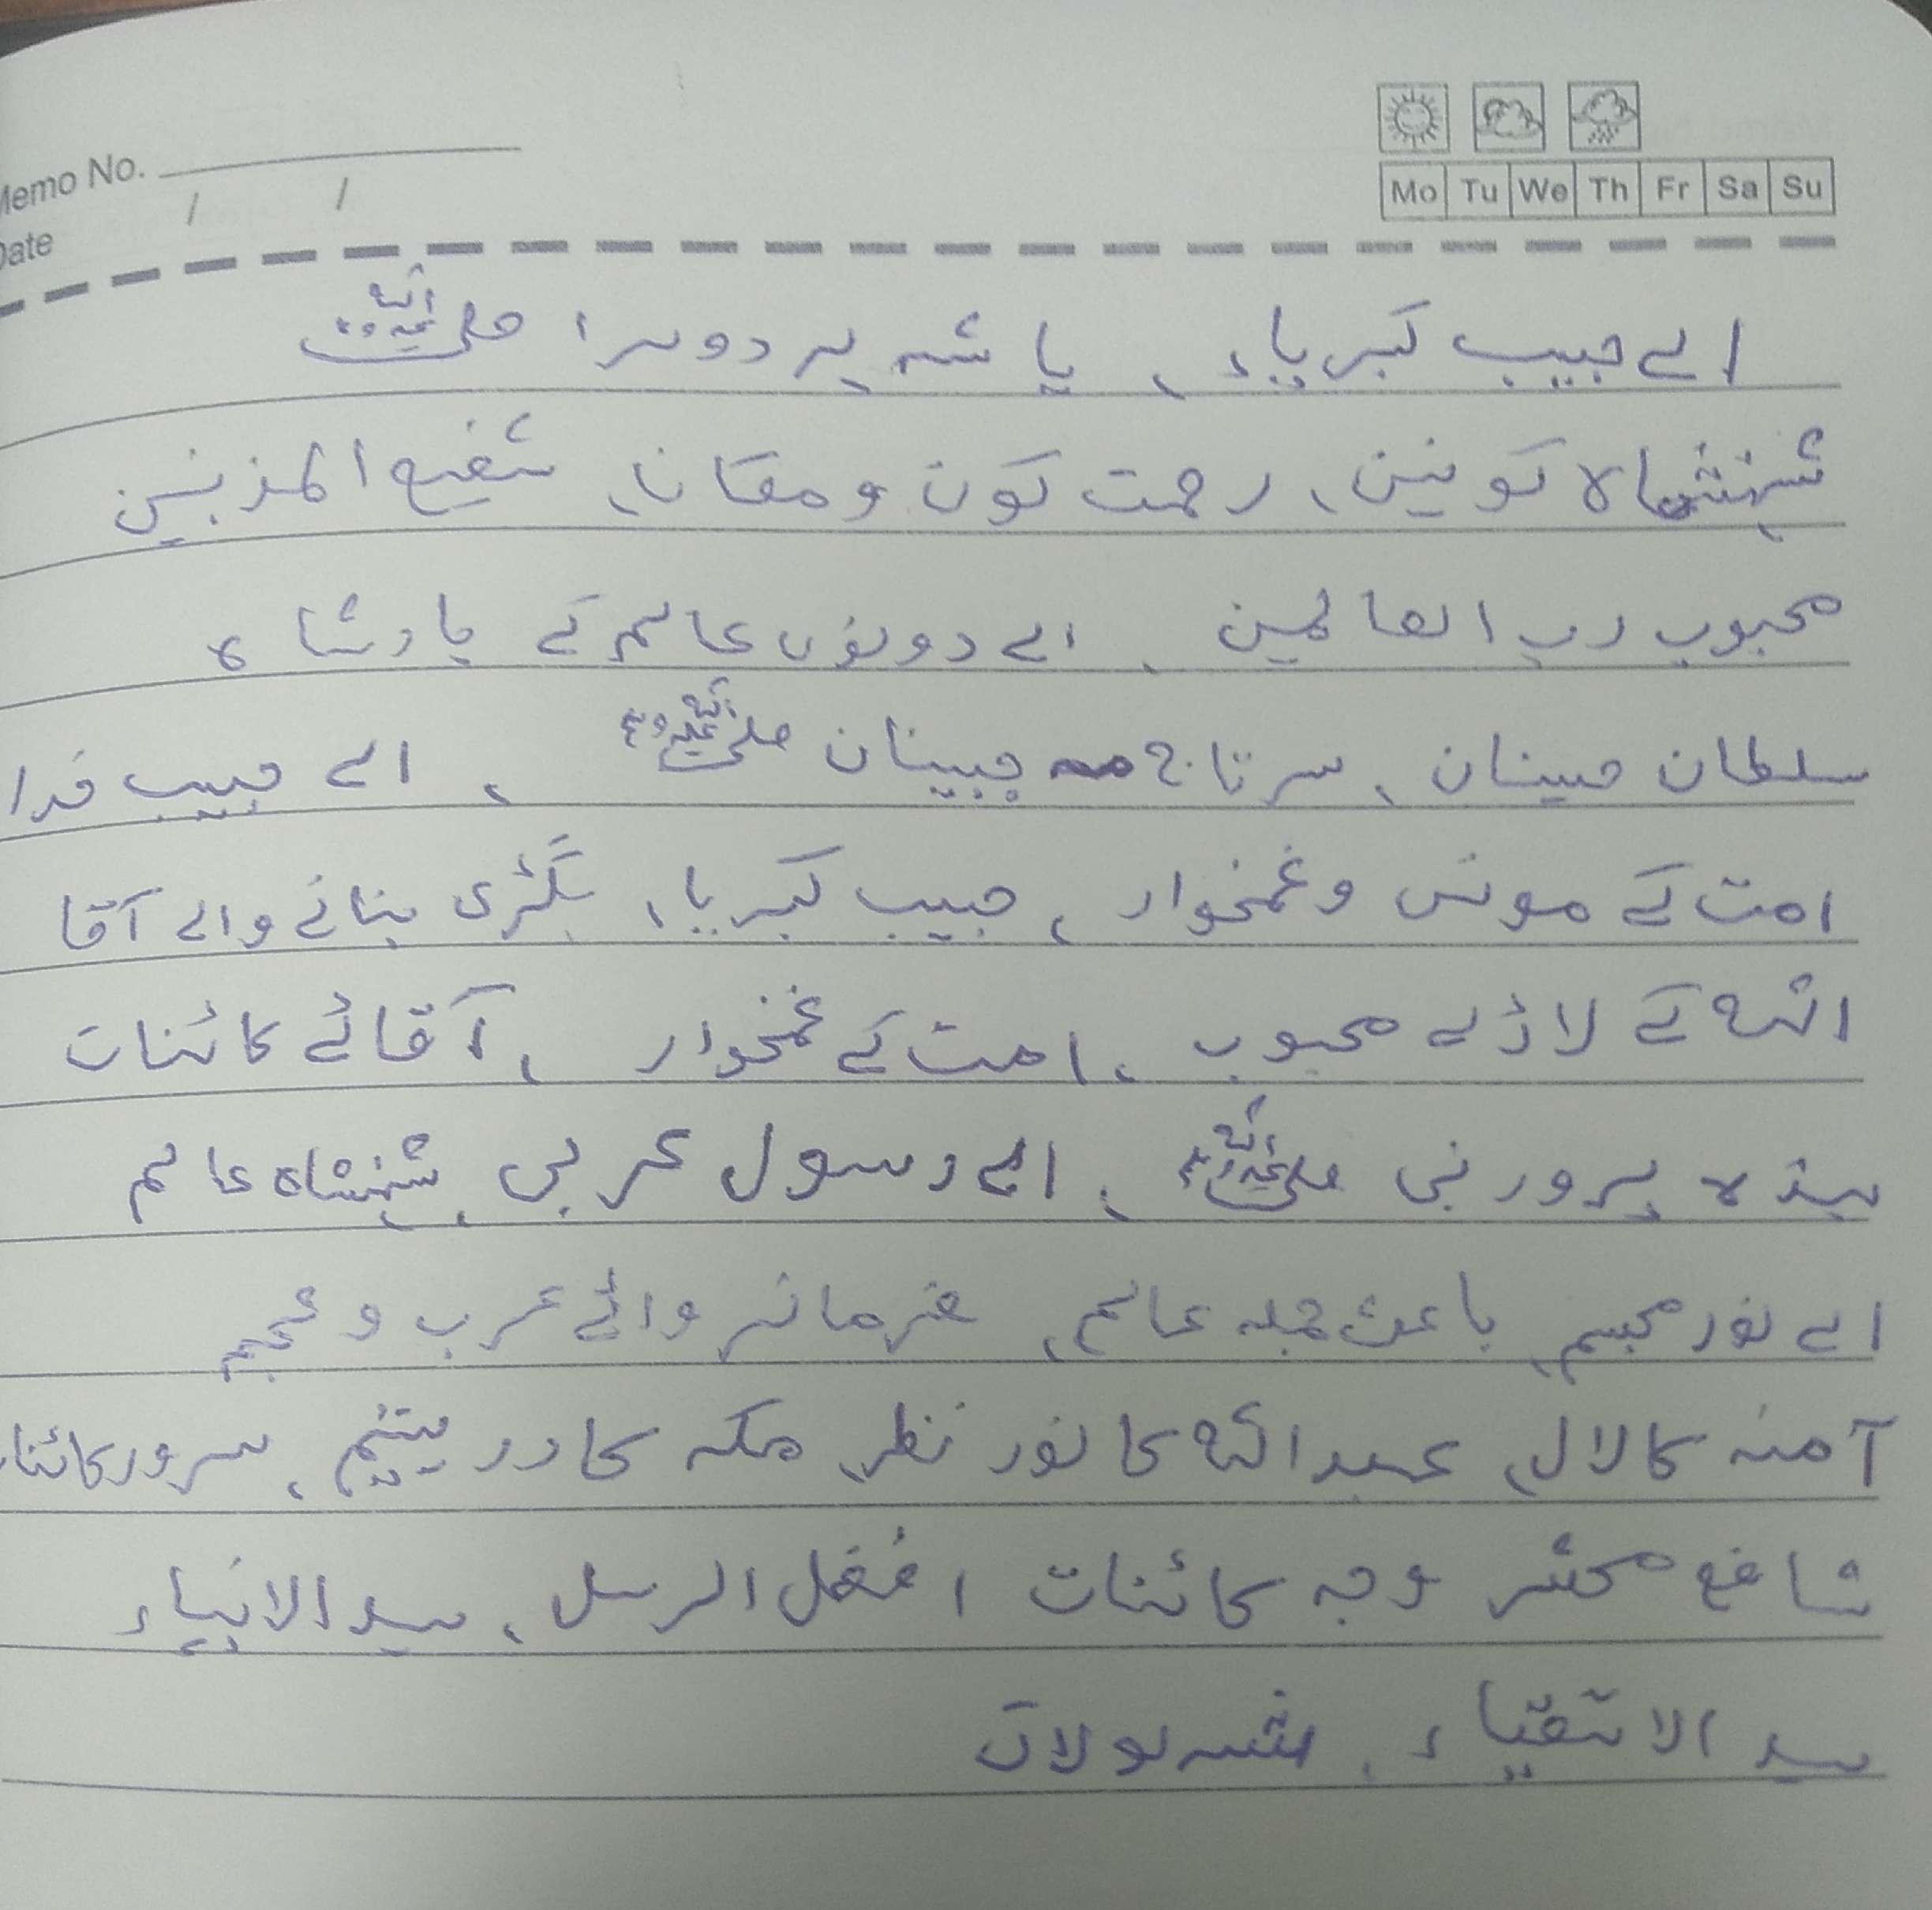 Memo No.
Date / /
Mo Tu We Th Fr Sa Su
اے حبیب کبریاء، یا شہ ہر دوسرا صلی اللہ علیہ وسلم
شہنشاہ کونین، رحمت کون و مکان، شفیع المذنبین
محبوب رب العالمین، اے دونوں عالم کے بادشاہ
سلطان حسینان، سرتاج مہ جبینان صلی اللہ علیہ وسلم، اے حبیب خدا
امت کے مونس و غمخوار، حبیب کبریا، بگڑی بنانے والے آقا
اللہ کے لاڈلے محبوب، امت کے غمخوار، آقائے کائنات
بندہ پرور نبی صلی اللہ علیہ وسلم، اے رسول عربی، شہنشاہ عالم
اے نور مجسم، باعث جملہ عالم، فرمانر وائے عرب و عجم
آمنہ کا لال، عبداللہ کا نور نظر، مکہ کا در یتیم، سرور کائنات
شافع محشر وجہ کائنات افضل الرسل، سید الانبیاء
سید الاتقیاء، شہ لولاک